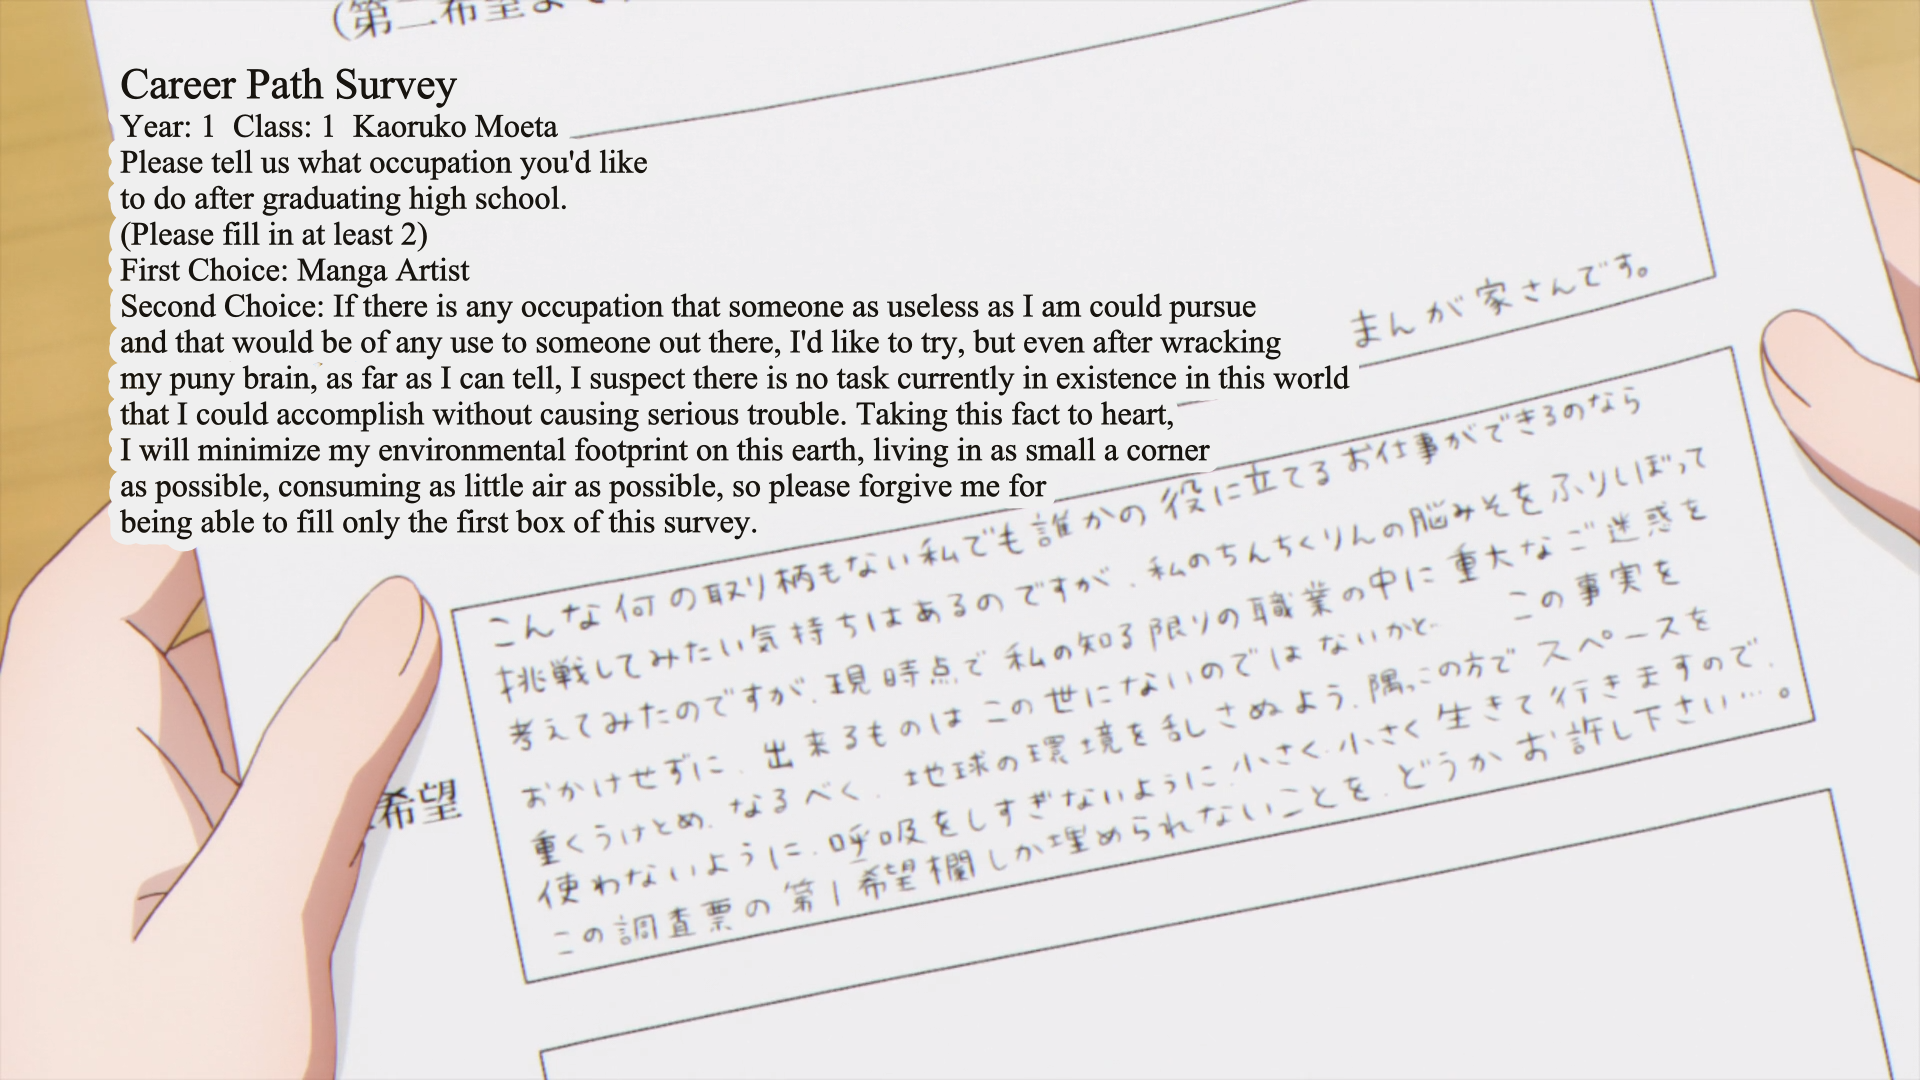 (第二希望まで
Career Path Survey
Year: 1 Class: 1 Kaoruko Moeta
Please tell us what occupation you'd like
to do after graduating high school.
(Please fill in at least 2)
First Choice: Manga Artist
Second Choice: If there is any occupation that someone as useless as I am could pursue
and that would be of any use to someone out there, I'd like to try, but even after wracking
my puny brain, as far as I can tell, I suspect there is no task currently in existence in this world
that I could accomplish without causing serious trouble. Taking this fact to heart,
I will minimize my environmental footprint on this earth, living in as small a corner
as possible, consuming as little air as possible, so please forgive me for
being able to fill only the first box of this survey.
まんが家さんです。
希望
こんな何の取り柄もない私でも誰かの役に立てるお仕事ができるのなら
挑戦してみたい気持ちはあるのですが、私のちんちくりんの脳みそをふりしぼって
考えてみたのですが、現時点で私の知る限りの職業の中に重大なご迷惑を
おかけせずに、出来るものはこの世にないのではないかと… この事実を
重くうけとめ、なるべく、地球の環境を乱さぬよう、隅っこの方でスペースを
使わないように、呼吸をしすぎないように、小さく、小さく生きて行きますので、
この調査票の第1希望欄しか埋められないことを、どうかお許し下さい…。